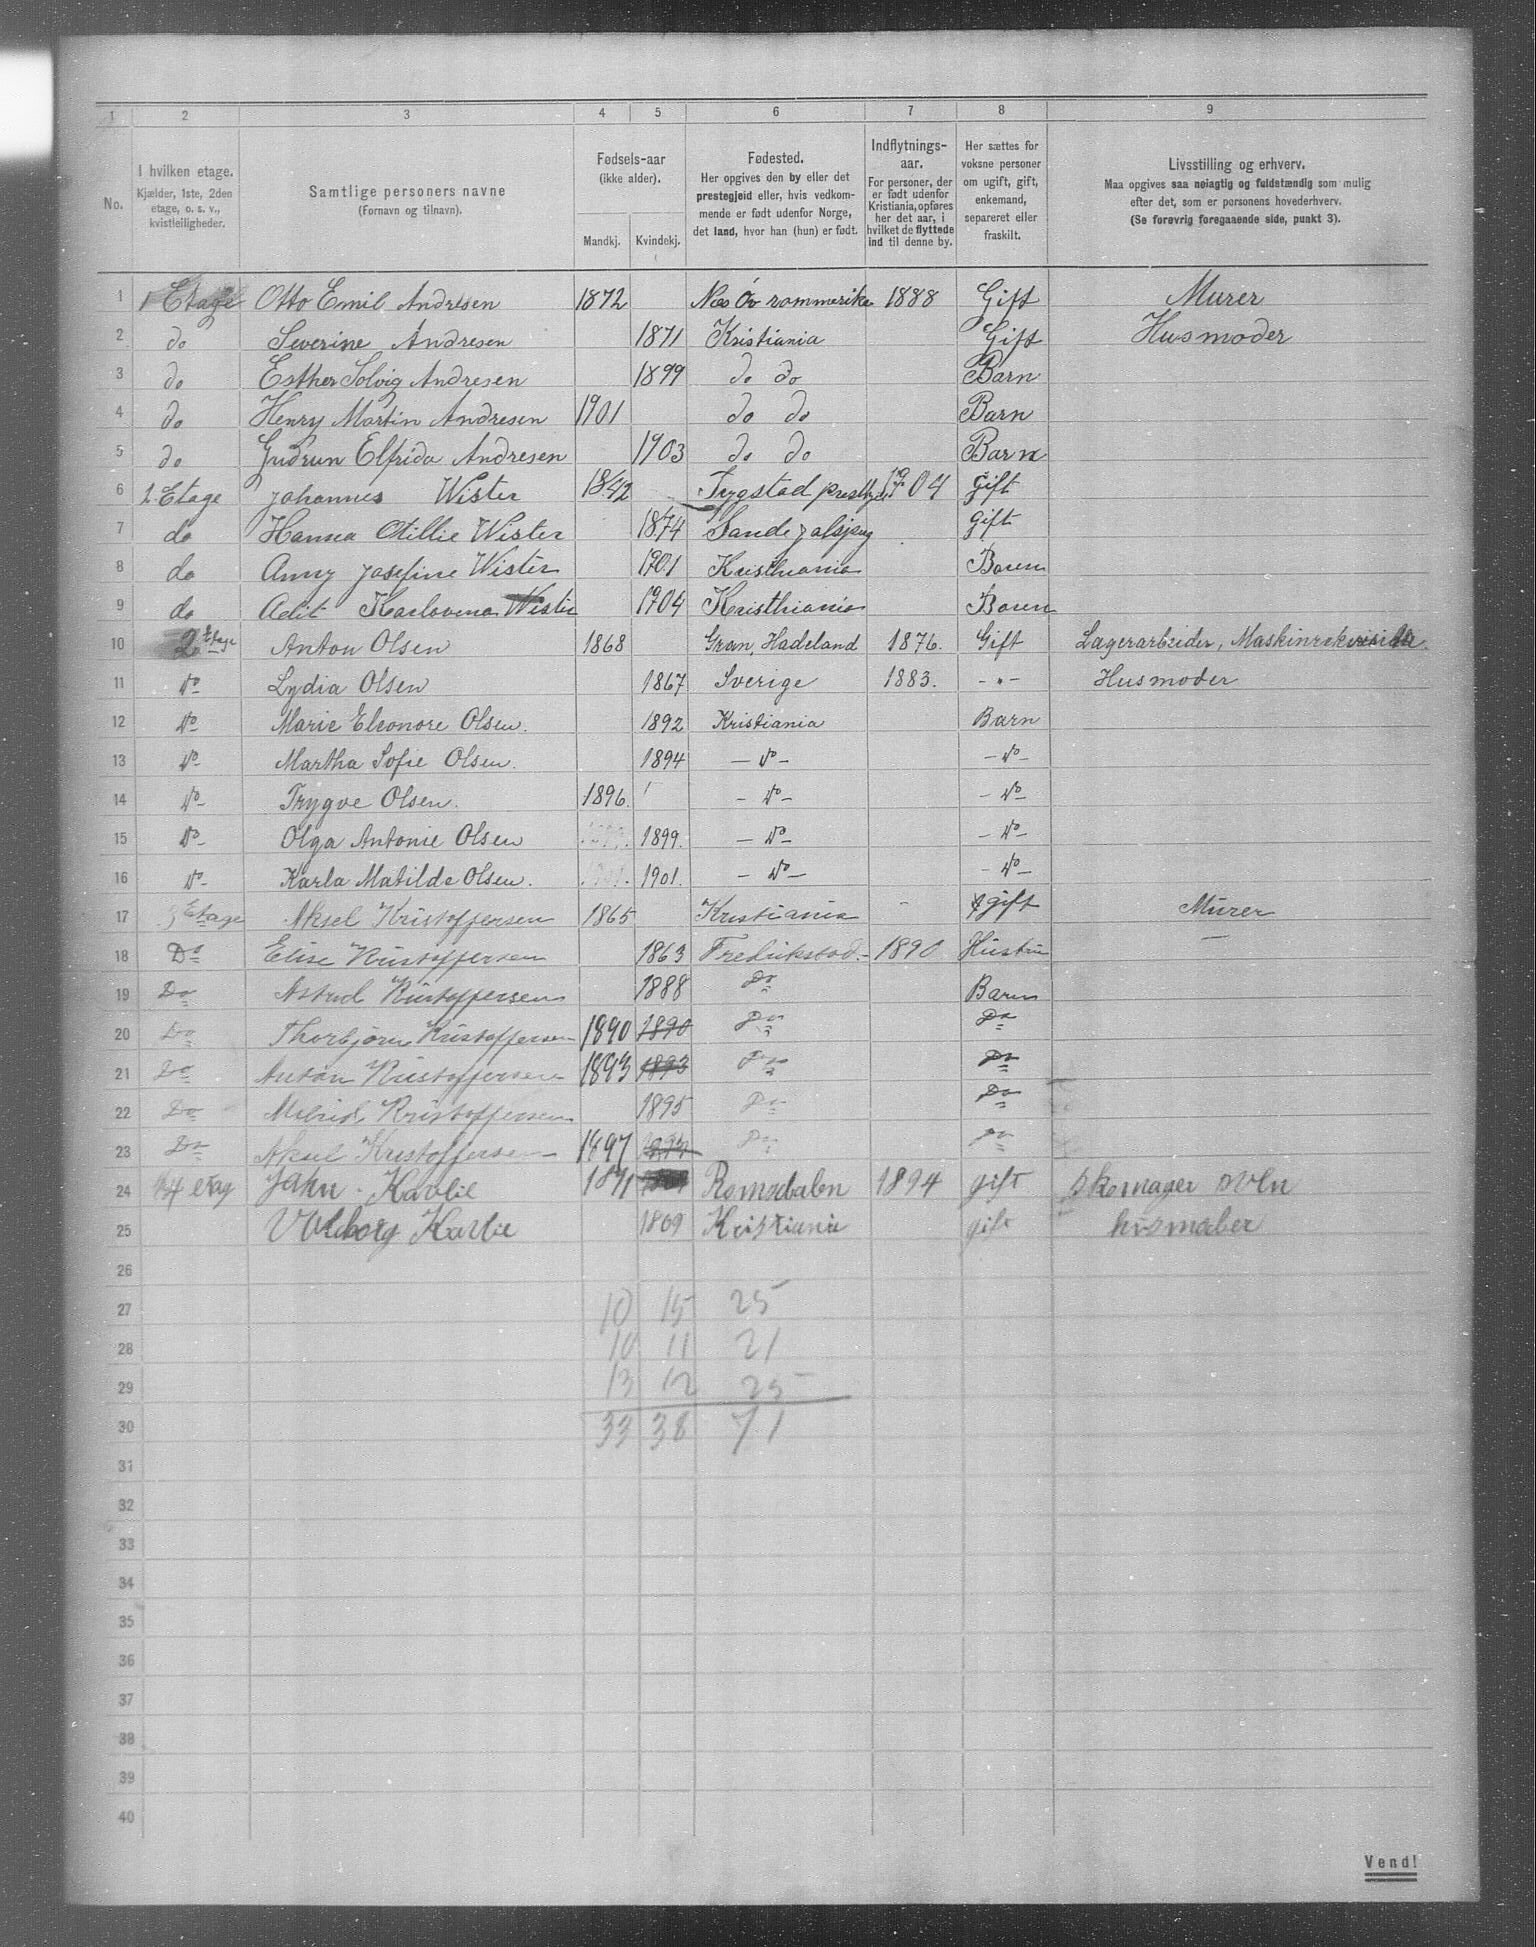 1 2 3 4 5 6 7 8 9
No.
I hvilken etage.
Kjælder, 1ste, 2den
etage, o. s. v.,
kvistleiligheder.
Samtlige personers navne
(Fornavn og tilnavn).
Fødsels-aar
(ikke alder).
Mandkj. Kvindekj.
Fødested.
Her opgives den by eller det
prestegjeld eller, hvis vedkom-
mende er født udenfor Norge,
det land, hvor han (hun) er født.
Indflytnings-
aar.
For personer, der
er født udenfor
Kristiania, opføres
her det aar, i
hvilket de flyttede
ind til denne by.
Her sættes for
voksne personer
om ugift, gift,
enkemand,
separeret eller
fraskilt.
Livsstilling og erhverv.
Maa opgives saa nøiagtig og fuldstændig som mulig
efter det, som er personens hovederhverv.
(Se forøvrig foregaaende side, punkt 3).
1 1 Etage Otto Emil Andresen 1872 Nes Øv rommerike 1888 Gift Murer
2 do Severine Andresen 1871 Kristiania Gift Husmoder
3 do Esther Solvig Andresen 1899 do do Barn
4 do Henry Martin Andresen 1901 do do Barn
5 do Gudrun Elfrida Andresen 1903 do do Barn
6 2 Etage Johannes Wister 1842 Trygstad 1904 gift
7 do Hanna Ottillie Wister 1874 Sande gift
8 do Anny Josefine Wister 1901 Kristhiania Baren
9 do Adit Karlovena Wister 1904 Kristhiania Baren
10 2 Etage Anton Olsen 1868 Gran, Hadeland 1876. Gift Lagerarbeider,
11 do Lydia Olsen 1867 Sverige 1883. - " - Husmoder
12 do Marie Eleonore Olsen. 1892 Kristiania Barn
13 do Martha Sofie Olsen. 1894 - do - - do -
14 do Trygve Olsen. 1896. - do - - do -
15 do Olga Antonie Olsen 1899. - do - - do -
16 do Karla Matilde Olsen. 1901. - do - - do -
17 3 Etage Aksel Kristoffersen 1865 Kristiania gift Murer
18 Do Elise Kristoffersen 1863 Fredrikstad. - 1890 Hustru
19 Do Astrid Kristoffersen 1888 Do Baren
20 Do Thorbjørn Kristoffersen 1890 1890 Do Do
21 Do Anton Kristoffersen 1893 1893 Do Do
22 Do Milrid Kristoffersen 1895 Do Do
23 Do Aksel Kristoffersen 1897 1897 Do Do
24 4 etag John Kavlie 1871 Romsdalen 1894 gift skomager svln
25 Valborg Kavlie 1869 Kristiania gift husmoder
26
27 10 15 25
28 10 11 21
29 13 12 25
30 33 38 71
31
32
33
34
35
36
37
38
39
40
Vend!